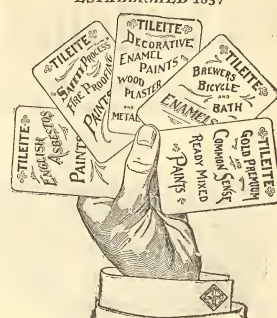 ESTABLISHED 1837
TILEITE
ENGLISH
ASBESTOS
PAINTS
TILEITE
SAFETY PROCESS
FIRE PROOFING
PAINTS
TILEITE
DECORATIVE
ENAMEL
PAINTS
WOOD
PLASTER
AND
METAL
TILEITE
BREWERS
BICYCLE
AND
BATH
ENAMELS
TILEITE
GOLD PREMIUM
AND
COMMON SENSE
READY MIXED
PAINTS